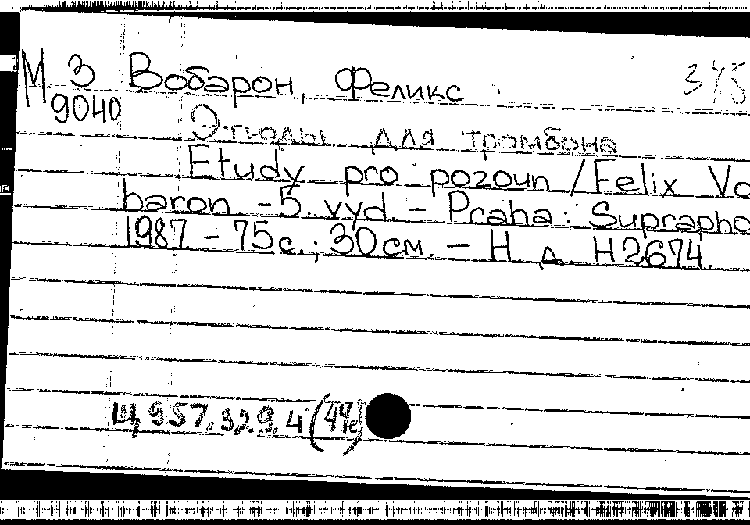 М 3 Вобарон, Феликс 345
9040 Этюды для тромбона
Etudy pro pozoun / Felix Vo
baron - 5. vyd. - Praha: Suprapho
1987 - 75 с.; 30 см. - Н. д. H2674.
Щ957.329.4